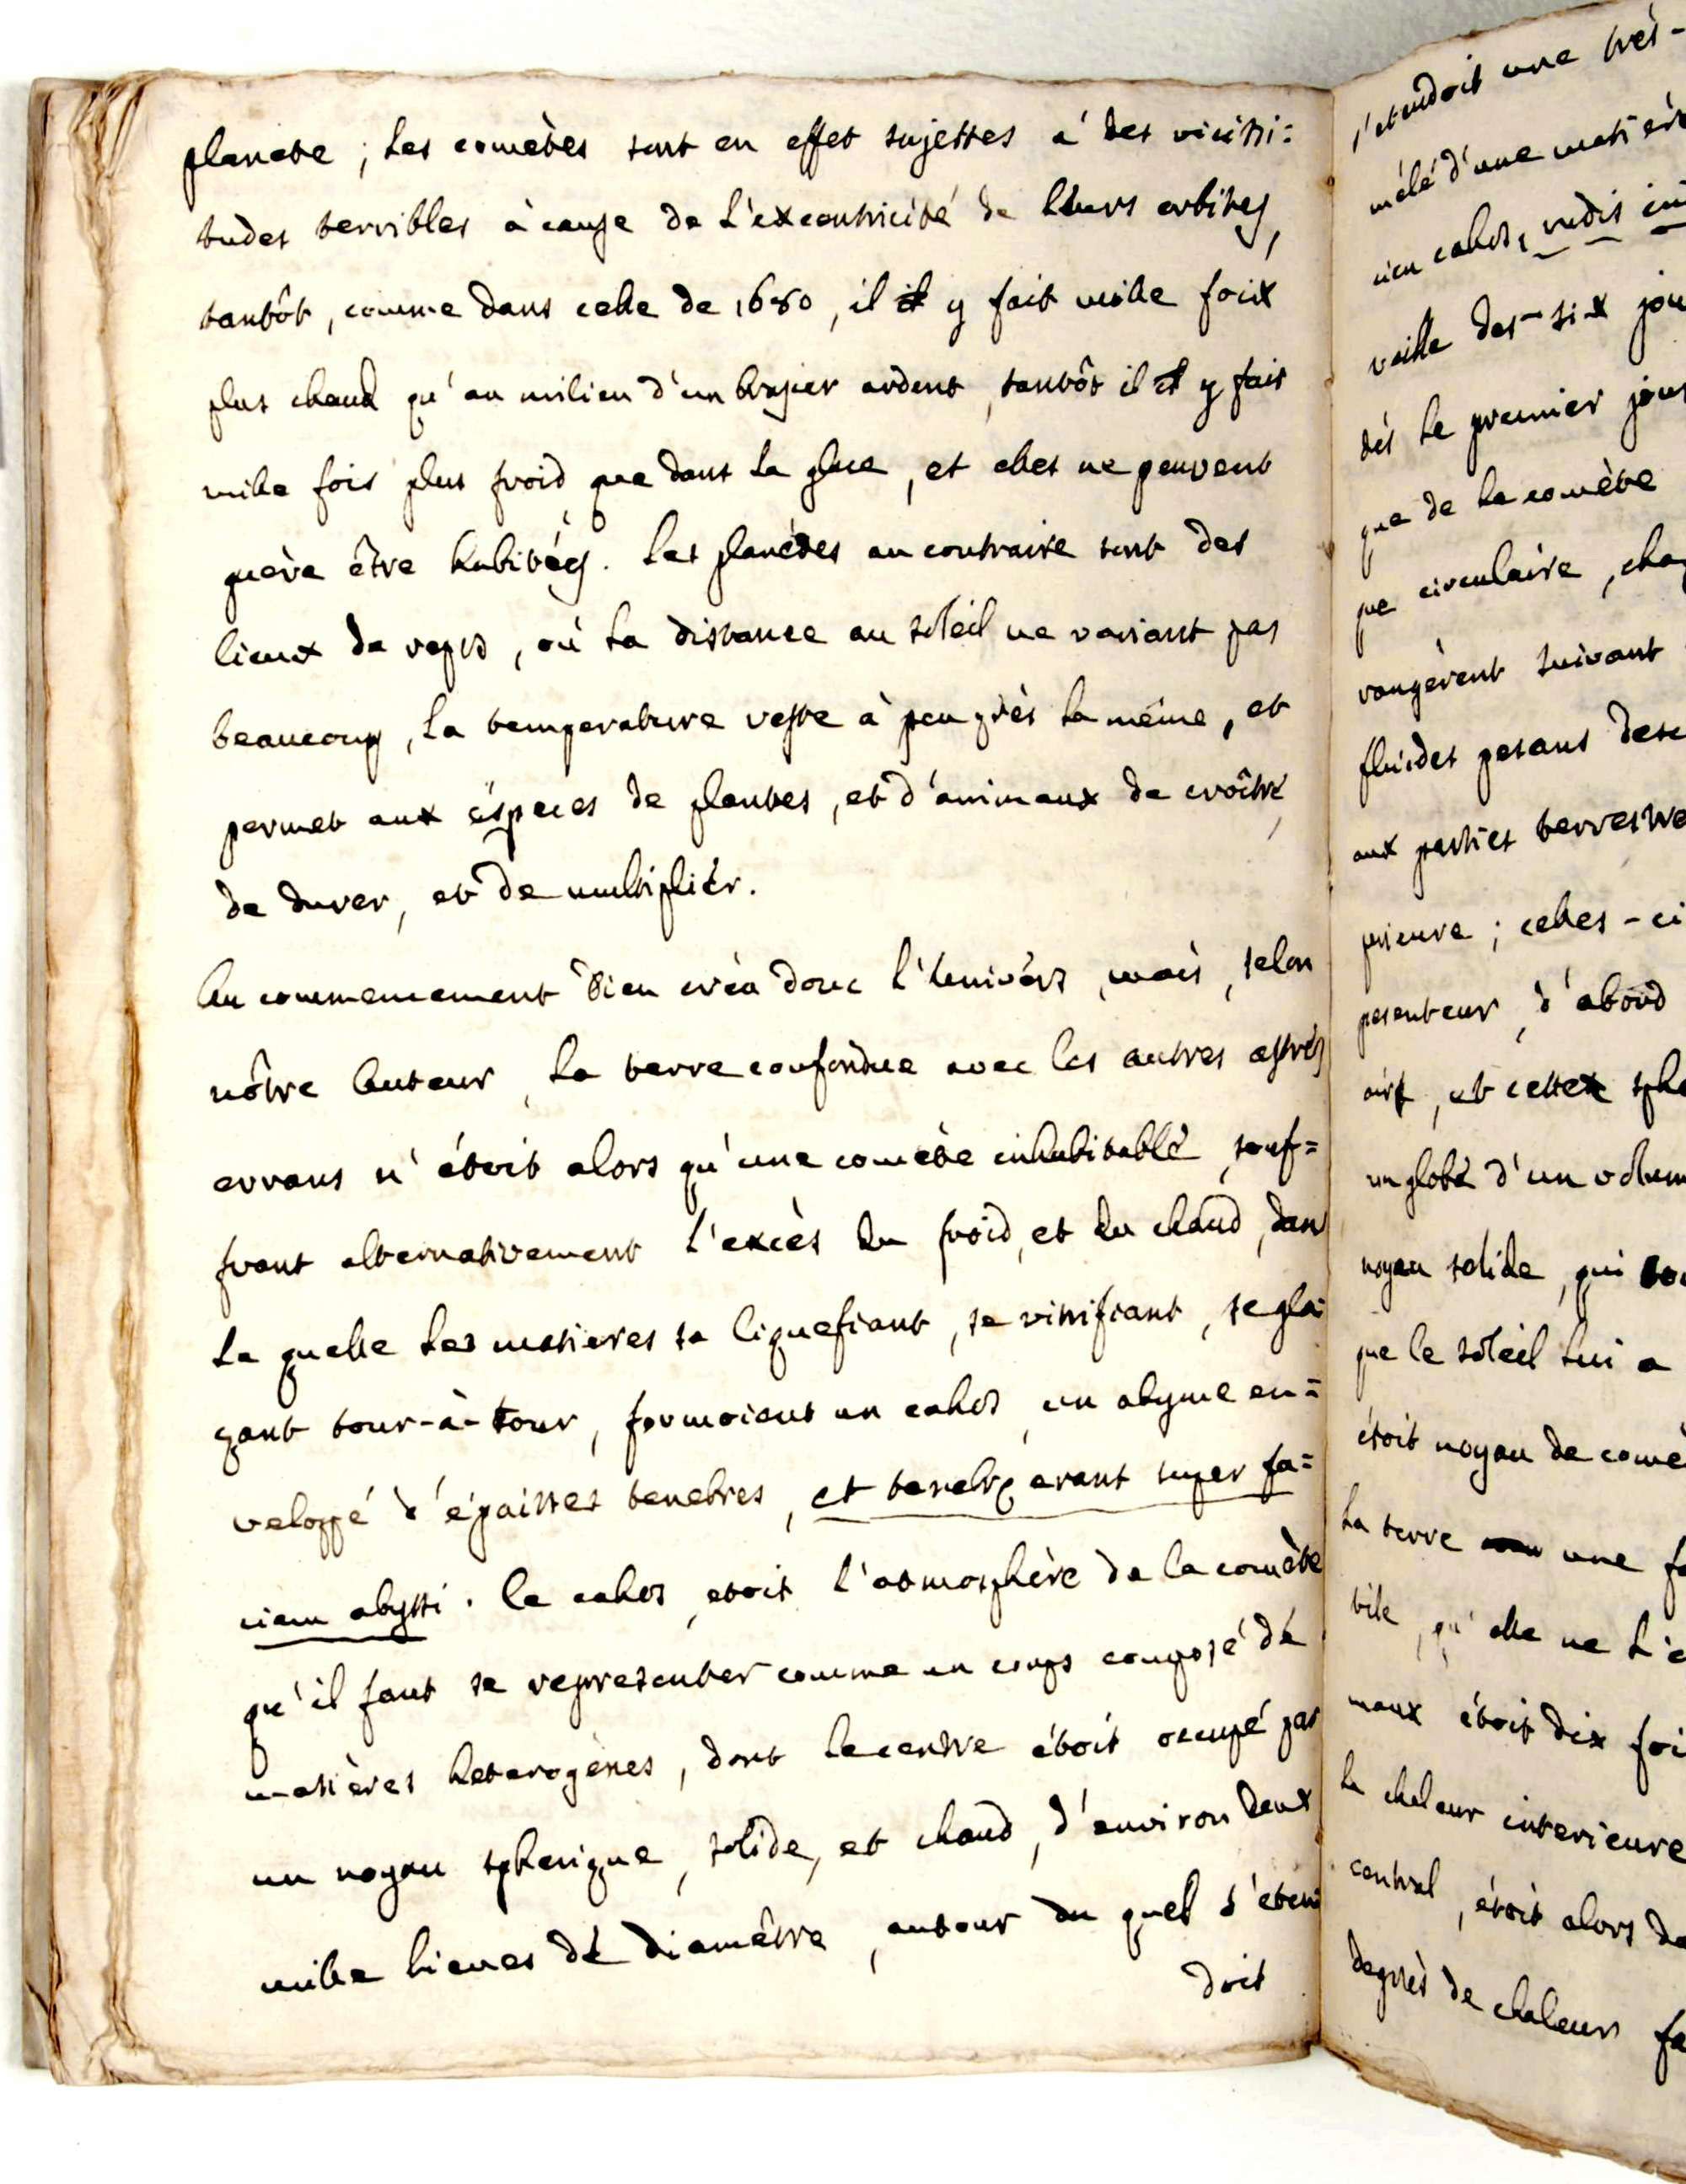 planete ; Les comètes sont en effet sujettes à des vicissi=
tudes terribles à cause de L'excentricité de Leurs orbites,
tantôt, comme dans celle de 1680, il y fait mille foix
plus chaud qu'au milieu d'un brasier ardent, tantôt il y fait
mille fois plus froid que dans La glace, et elles ne peuvent
guère être habitées. Les planétes au contraire sont des
lieux de repos, où La distance au soleil ne variant pas
beaucoup, La temperature reste à peu près La même, et
permet aux éspeces de plantes, et d'animaux de croître,
de durer, et de multiplier.
Au commencement Dieu créa donc l'Univérs, mais, selon
nôtre Auteur, La terre confondue avec les autres astres
errans n'étoit alors qu'une comète inhabitable, souf=
frant alternativement L'excès du froid, et du chaud, dans
La quelle Les matieres se liquefiant, se vitrifiant, se gla=
çant tour-à-tour, formoient un cahos, un abyme en=
veloppé d'épaisses tenebres, et tenebrę erant super fa=
ciem abyssi. Ce cahos etoit L'atmosphère de la comète
qu'il faut se representer comme un corps composé de
matières heterogènes, dont Le centre étoit occupé par
un noyau spherique, solide, et chaud, d'environ deux
mille Lieues de diamêtre, autour du quel s'éten
doit
s'etendoit une très-
mêlé d'une matière
cien cahos, rudis in
veille des six jou
dès Le premier jour
que de La comète
que circulaire, cha
rangèrent suivant
fluides pesans desc
aux parties terrestre
rieure ; celles-ci
pesenteur, d'abord
air, et cette sphe
un globe d'un volum
noyau solide, qui
que le soleil Lui a
étoit noyau de comè
La terre une fo
tile, qu'elle ne L'e
maux étoit dix foi
La chaleur interieure
central, étoit alors de
degrès de chaleur fa